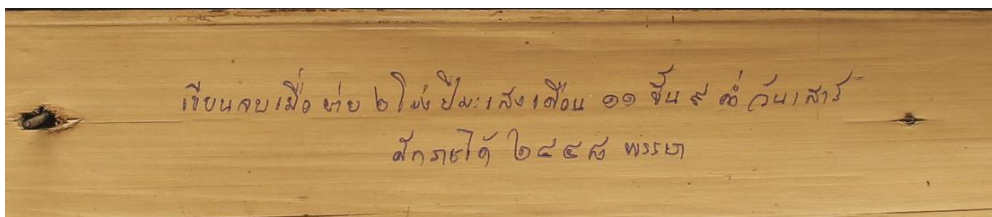 เขียนจบเมื่อ บ่าย ๒ โมง ปีมะเสง เดือน ๑๑ ขึ้น ๙ ค่ำ วันเสาร์
ศักราชได้ ๒๔๔๘ พรรษา